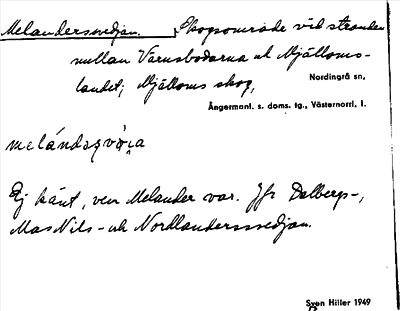 Melanderssvedjan. Skogsområde vid stranden
mellan Värnsbodarna o. Mjälloms-
landet; Mjälloms skog,
Nordingrå sn,
Ångermanl. s. doms. tg., Västernorrl. l.
Ej känt, vem Melander var. Jfr Dalbergs-,
Mas Nils- och Nordlanderssvedjan.
Sven Hiller 1949